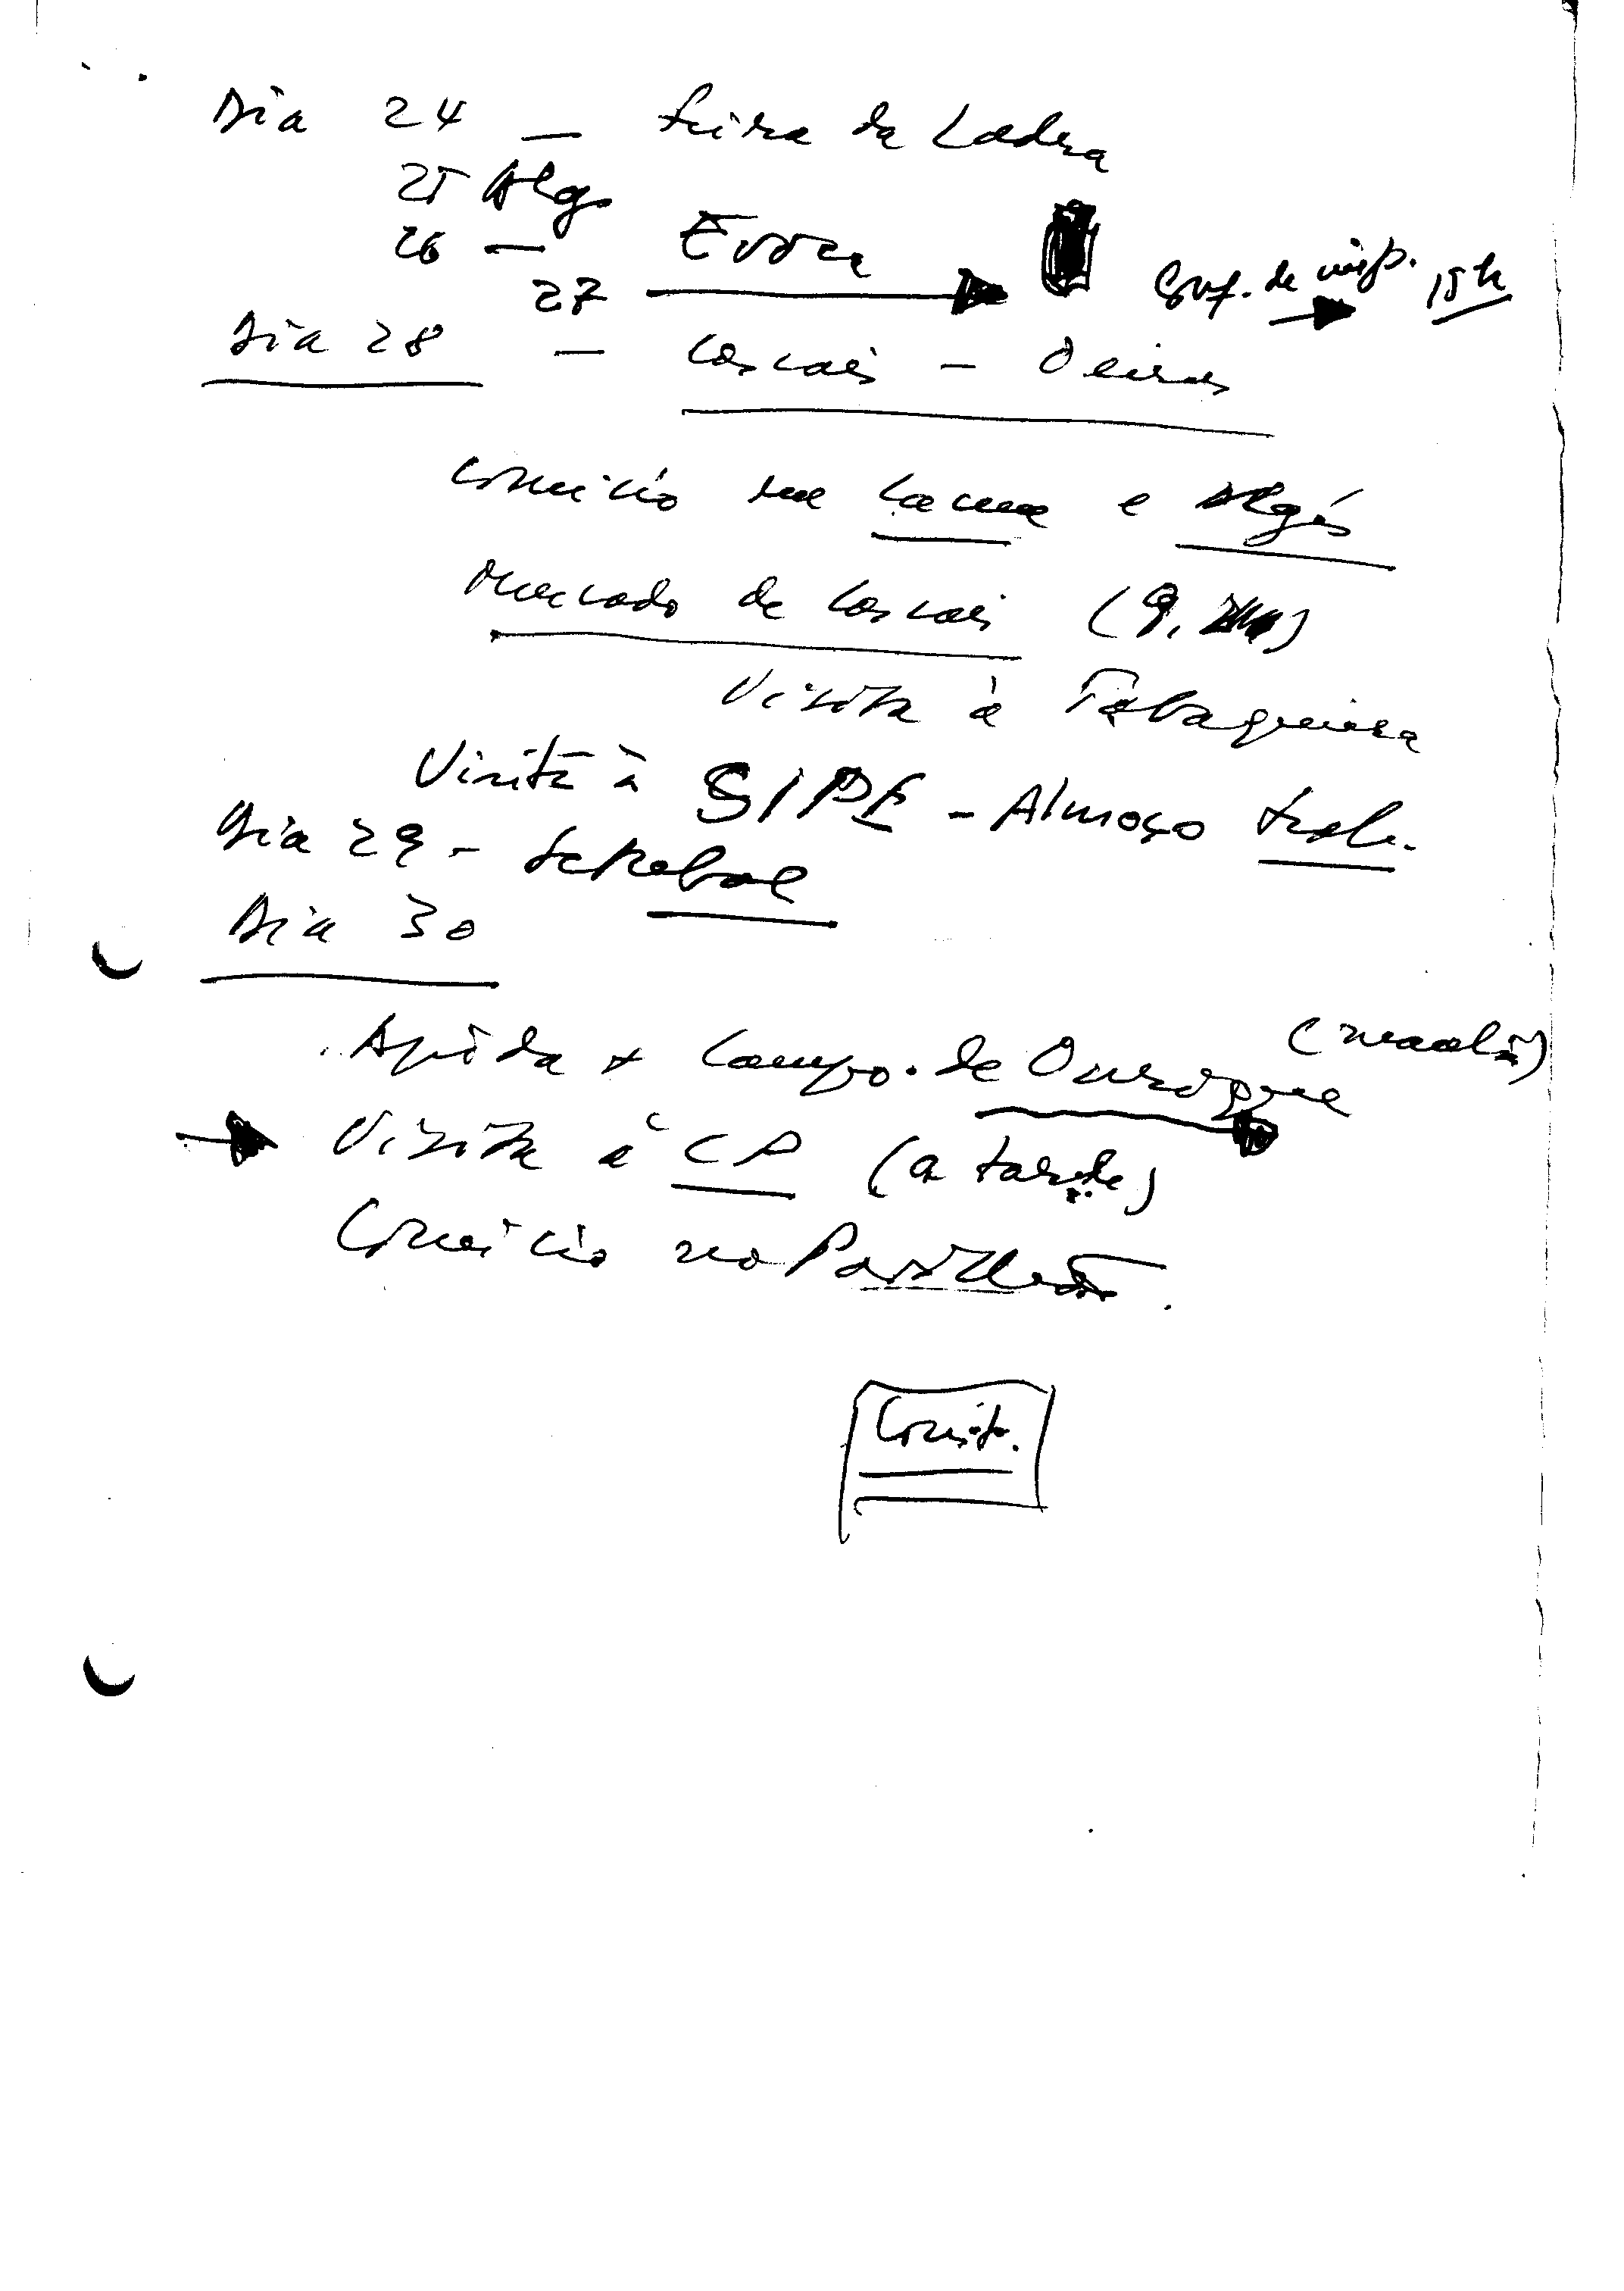 Dia 24 — Feira da Ladra
25 Alg.
26 — Evora
27 Conf. de 15h
Dia 28 — Cascais - Oeiras
Comício em e Algés
Mercado de Cascais (9.
Visita à Tabaqueira
Visita à SIPE - Almoço trab.
Dia 29 - Setubal
Dia 30
Ajuda + Campo de Ourique
Visita à CP (a tarde)
Comício no Pavilhão.